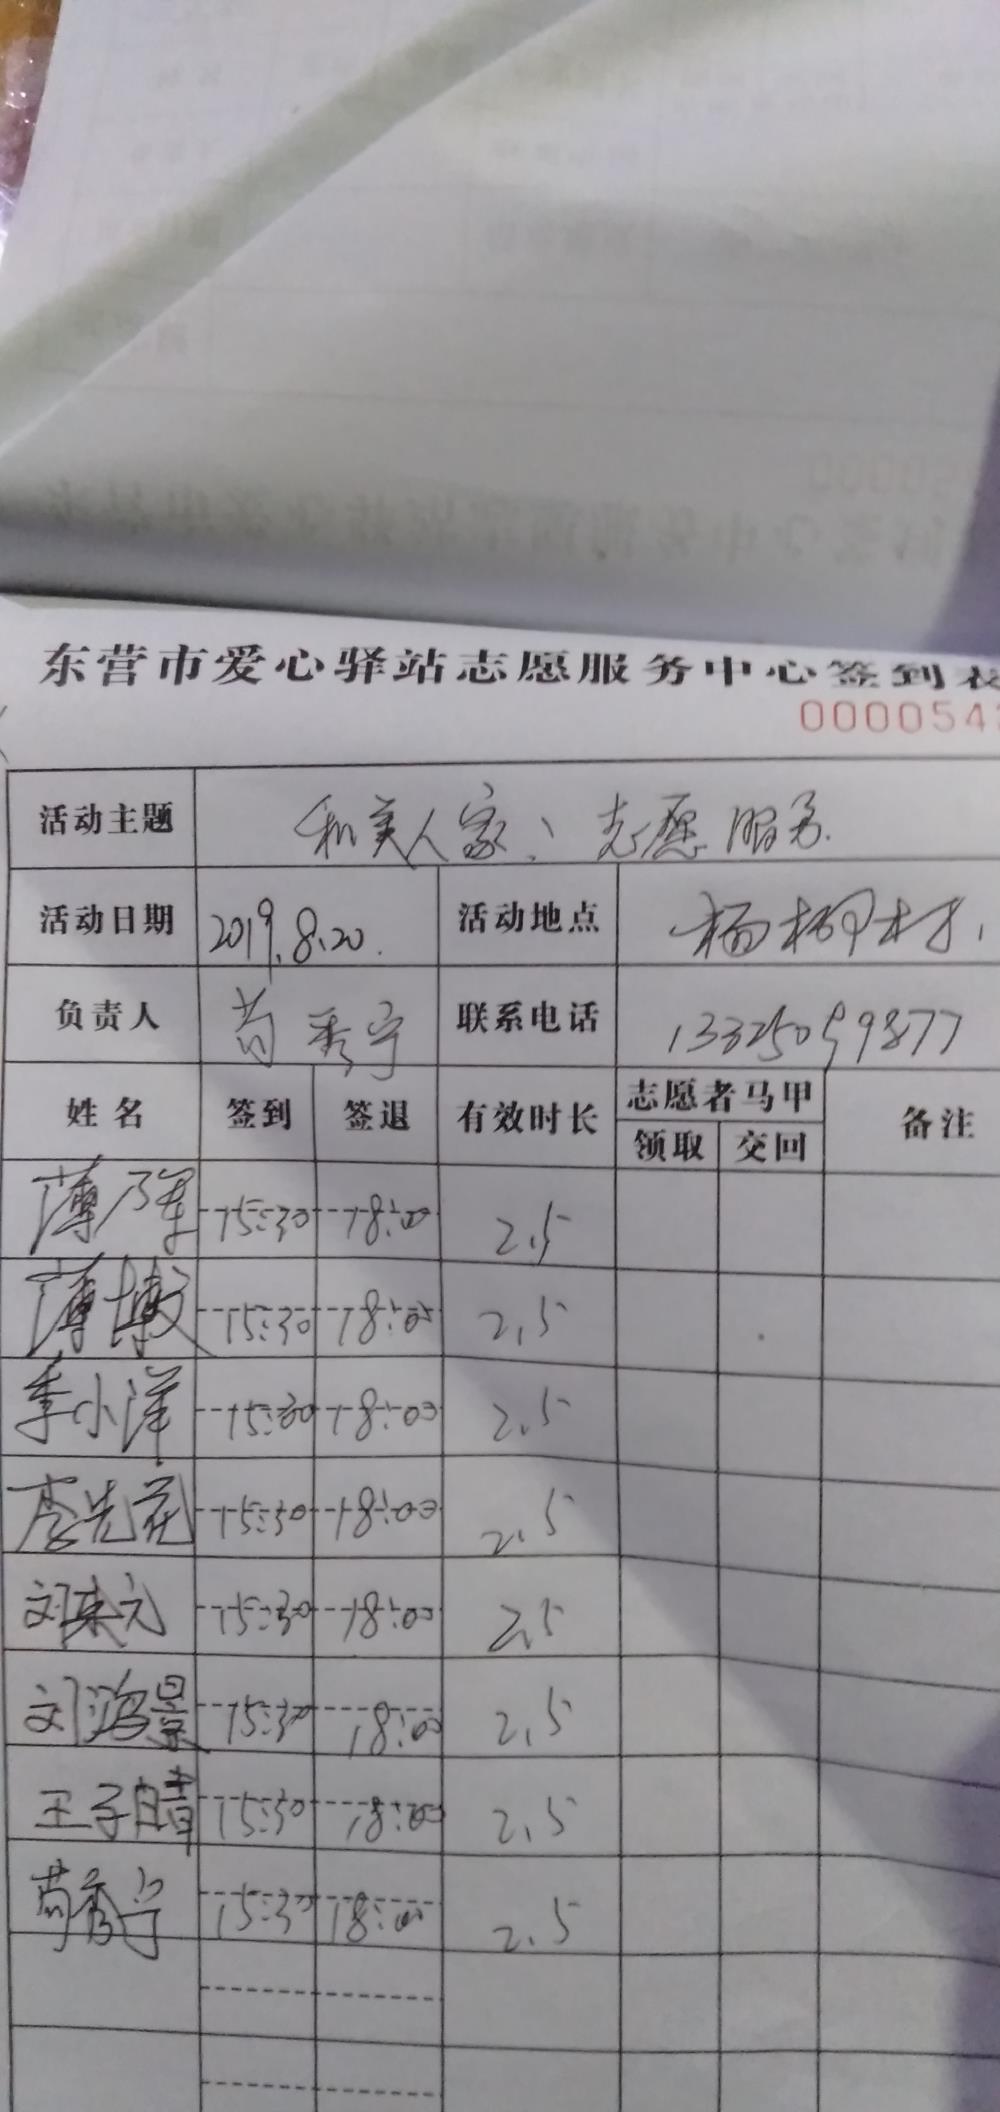 东营市爱心驿站志愿服务中心签到表
000054
活动主题 和美人家、志愿服务
活动日期 2019.8.20. 活动地点 杨柳村
负责人 苟秀宁 联系电话 13325059877
姓名 签到 签退 有效时长 志愿者马甲 备注
领取 交回
15:30 18:00 2.5
15:30 18:00 2.5
季小洋 15:30 18:00 2.5
李先花 15:30 18:00 2.5
刘来元 15:30 18:00 2.5
刘鸿景 15:30 18:00 2.5
王子晴 15:30 18:00 2.5
苟秀宁 15:30 18:00 2.5